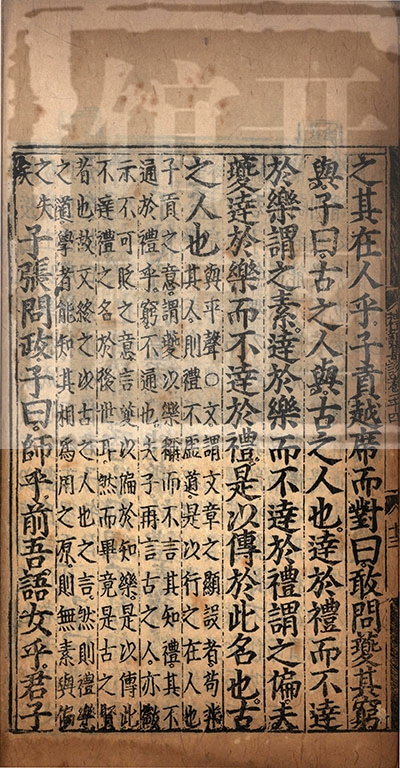 之其在人乎子貢越席而對曰敢問夔其窮
與子曰古之人與古之人也達於禮而不達
於樂謂之素達於樂而不達於禮謂之偏夫
夔達於樂而不達於禮是以傳於此名也古
之人也
與平聲○文謂文章之顯設者苟非
其人則禮不虛道是以行之在人也
子貢之意謂夔以樂稱而不言其知禮其不
通於禮乎窮不通也夫子再言古之人亦微
示不可貶之意言夔以偏於知樂是以傳此
不達禮之名於後世耳然而畢竟是古之賢
者也故文終之以古之人也之言然則禮樂
之道學者能知其相爲用之原則無素與偏
之失
矣
子張問政子曰師乎前吾語女乎君子